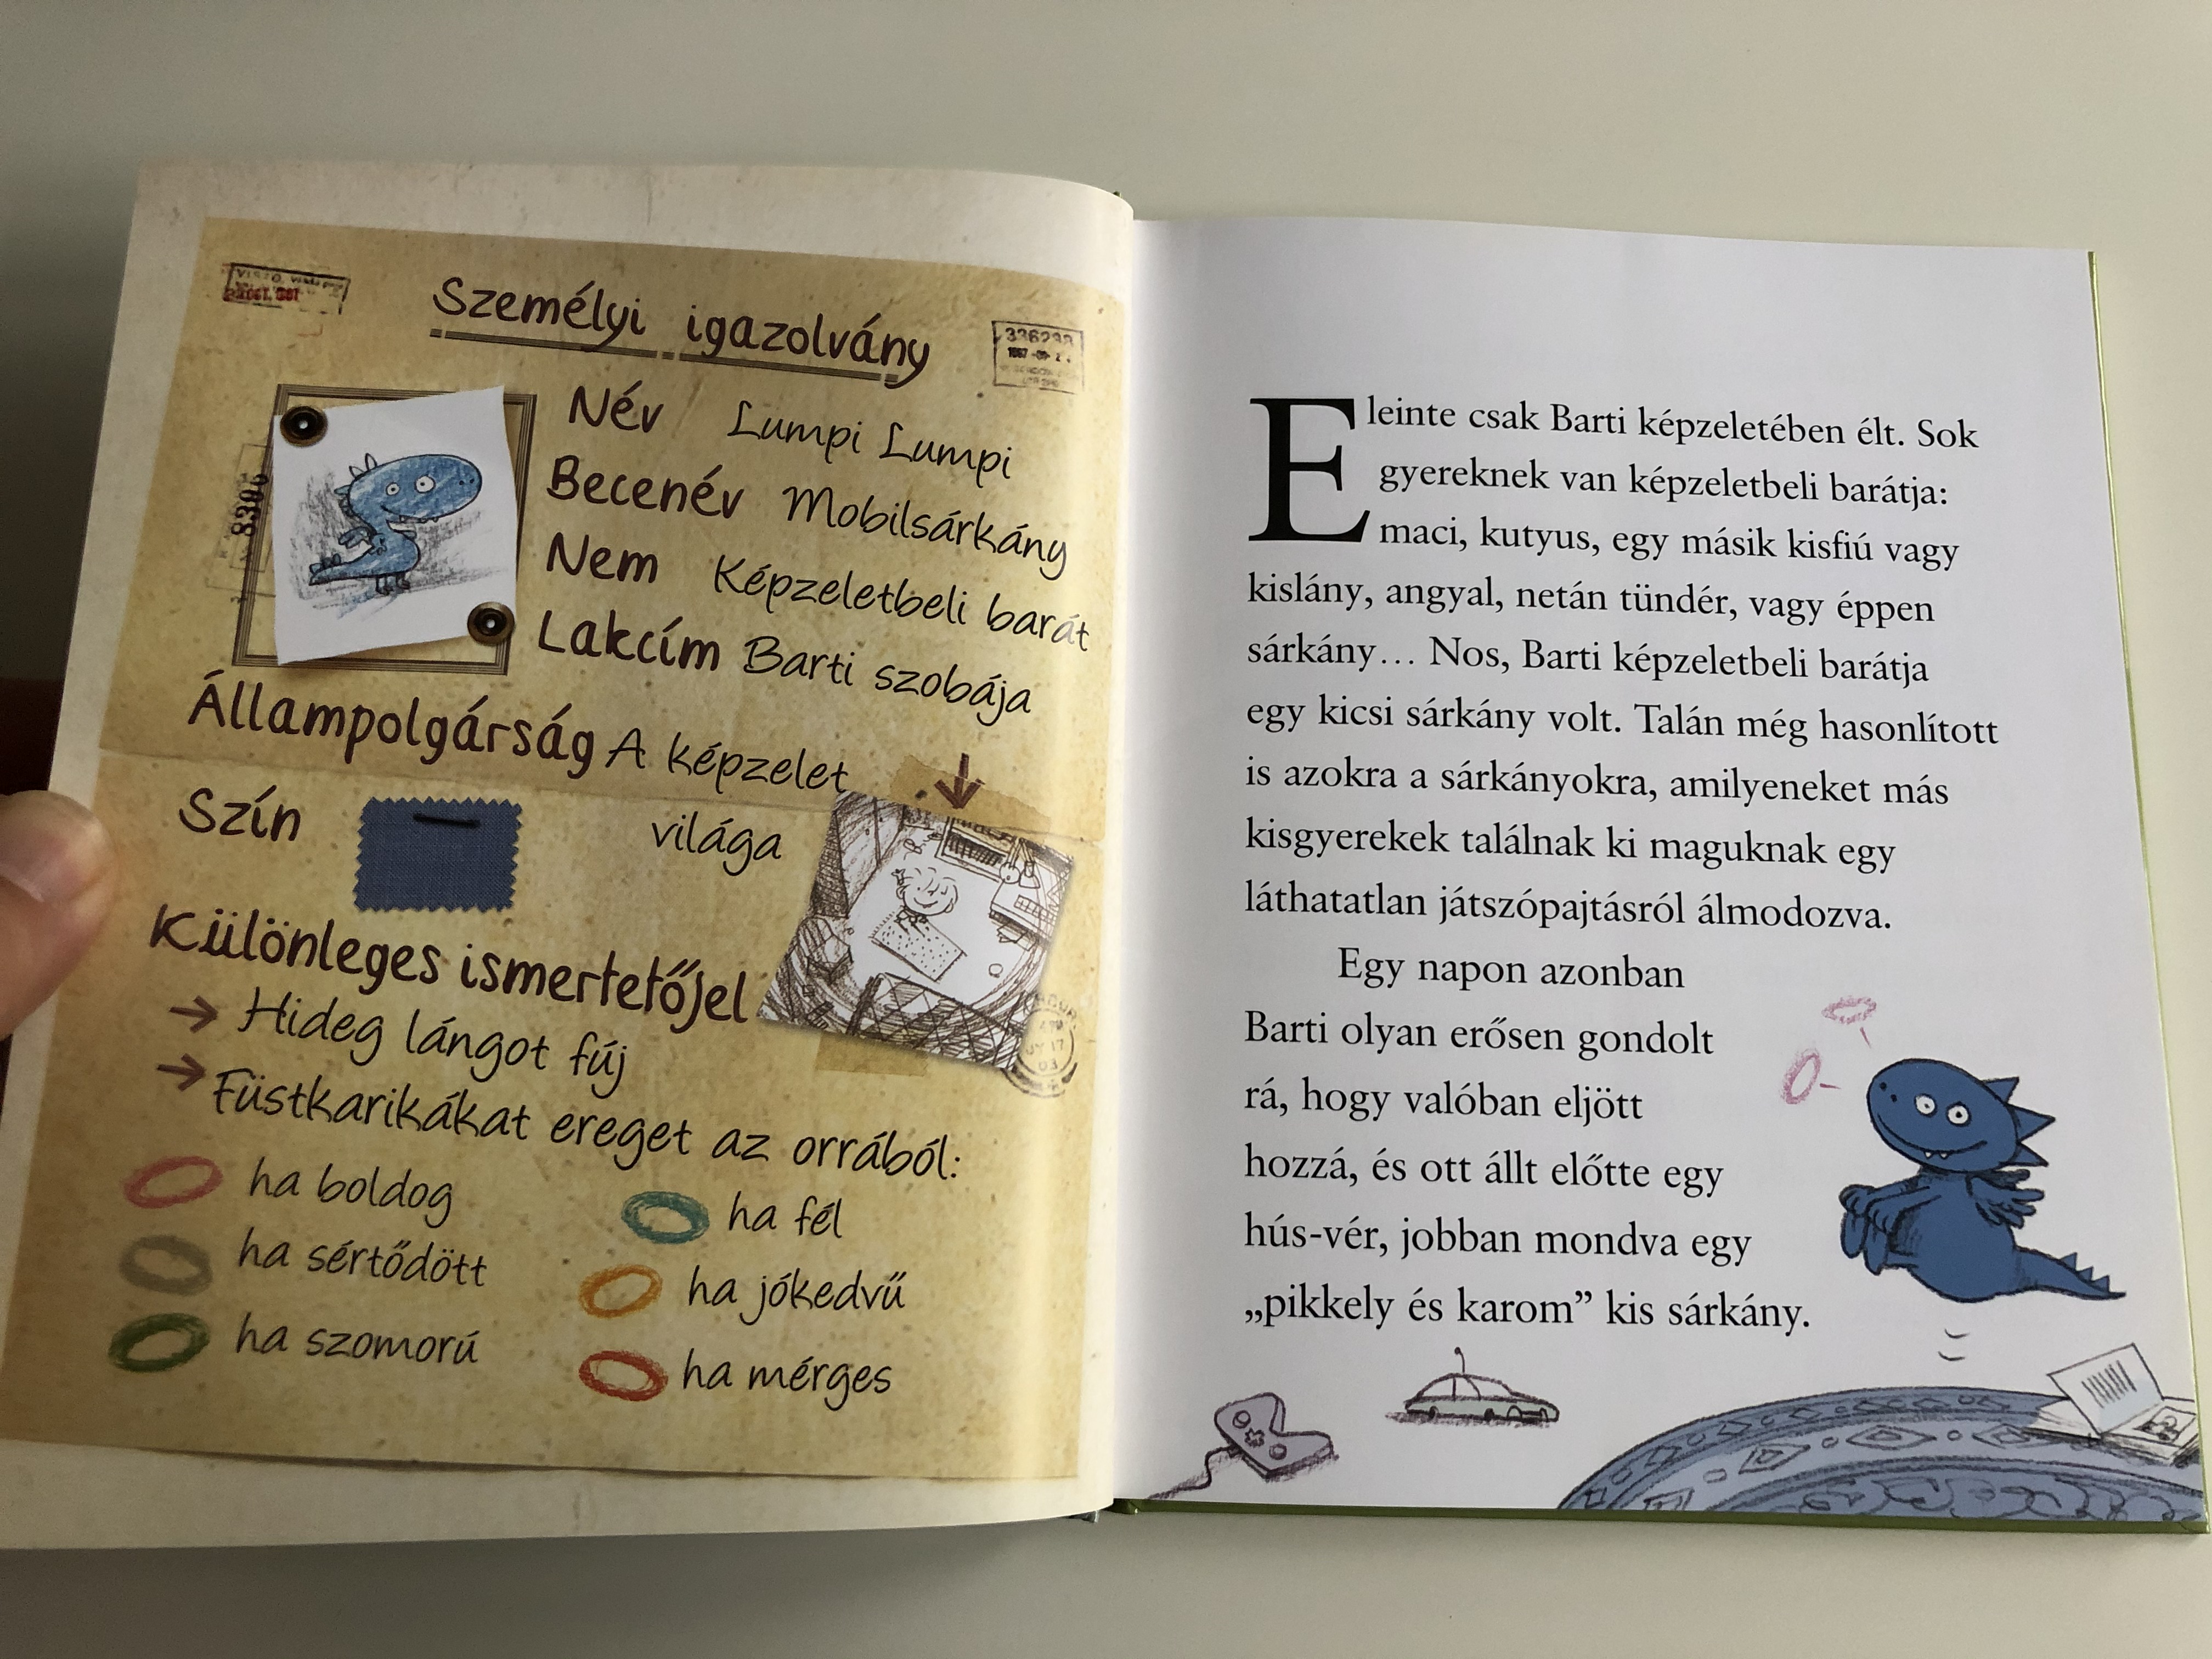 Személyi igazolvány
336233
8306
Név Lumpi Lumpi
Becenév Mobilsárkány
Nem Képzeletbeli barát
Lakcím Barti szobája
Állampolgárság A képzelet
világa
Szín
Különleges ismertetőjel
→ Hideg lángot fúj
→ Füstkarikákat ereget az orrából:
ha boldog
ha sértődött
ha szomorú
ha fél
ha jókedvű
ha mérges
Eleinte csak Barti képzeletében élt. Sok
gyereknek van képzeletbeli barátja:
maci, kutyus, egy másik kisfiú vagy
kislány, angyal, netán tündér, vagy éppen
sárkány… Nos, Barti képzeletbeli barátja
egy kicsi sárkány volt. Talán még hasonlított
is azokra a sárkányokra, amilyeneket más
kisgyerekek találnak ki maguknak egy
láthatatlan játszópajtásról álmodozva.
Egy napon azonban
Barti olyan erősen gondolt
rá, hogy valóban eljött
hozzá, és ott állt előtte egy
hús-vér, jobban mondva egy
„pikkely és karom” kis sárkány.